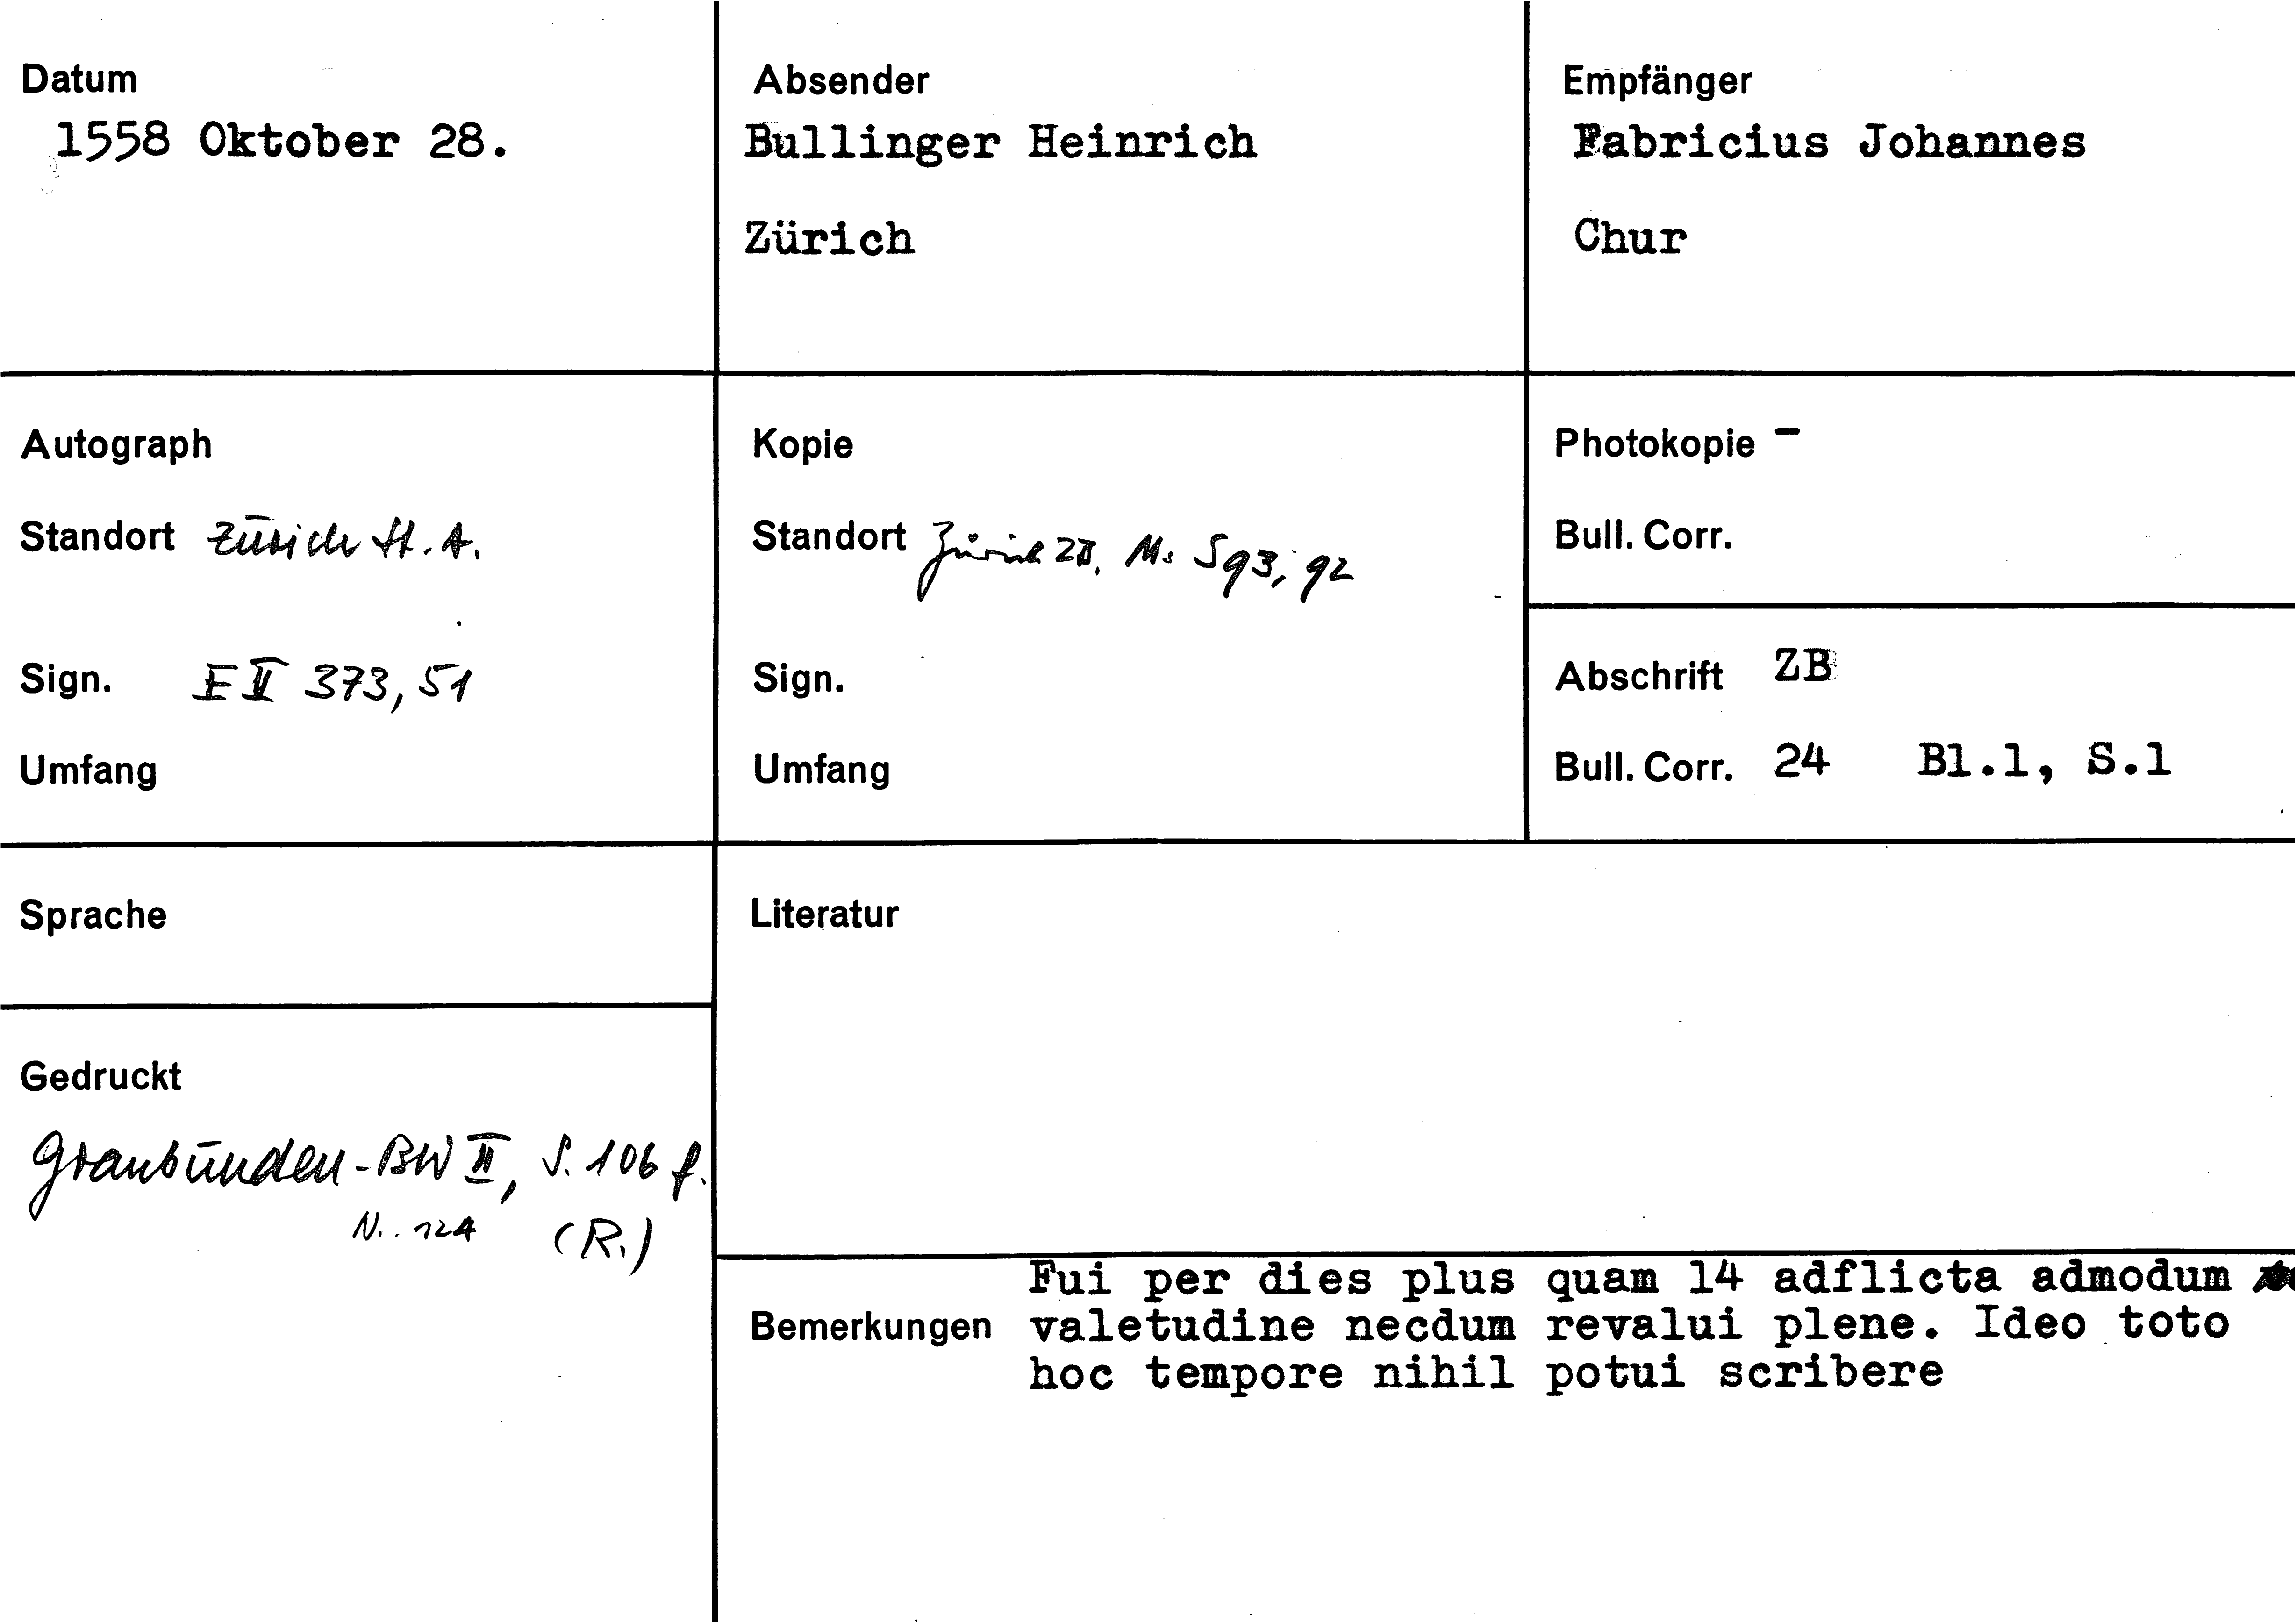 Datum
1558 Oktober 28.
Absender
Bullinger Heinrich
Zürich
Empfänger
Fabricius Johannes
Chur
Autograph
Standort Zürich St. A.
Sign. E II 373, 51
Umfang
Kopie
Standort Zürich ZB, Ms S 93, 92
Sign.
Umfang
Photokopie -
Bull. Corr.
Abschrift ZB
Bull. Corr. 24 Bl.1, S.1
Sprache
Gedruckt
Graubünden-BW II, S. 106 f.
N.. 124 (R.)
Literatur
Bemerkungen
Fui per dies plus quam 14 adflicta admodum
valetudine necdum revalui plene. Ideo toto
hoc tempore nihil potui scribere